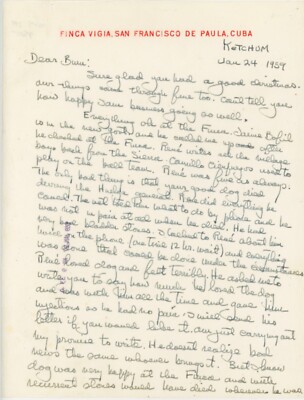 FINCA VIGIA, SAN FRANCISCO DE PAULA, CUBA
KETCHUM
Jan 24 1959
Dear Bum:
Sure glad you had a good christmas.
Our things came through fine too. Can't tell you
how happy Sam business going so well.
Everything ok at the Finca.
in the new govt and he
he checked at the Finca. René writes the village
boys back from the Sierra Camilo Cienfuegos used to
play on the ball team. René was fine as always.
The only bad thing is that your good dog died
during the Havana. René did everything he
could. The vet told him what to do by phone and he
was not in pain at all when he died. He had
very bad bladder stones. I talked to René about him
on the phone (we tried 12 hrs. wait) and everything
was done that could be done under the circumstances.
René loved dog and felt terribly. He asked me to
write you to say how much he loved the dog
and was with him all the time and gave him
injections so he had no pain. I will send his
letter if you would like it. Am just carrying out
my promise to write. He doesn't realize bad
news the same whoever brings it. But I know
dog was very happy at the Finca and with
recurrent stones would have died wherever he was